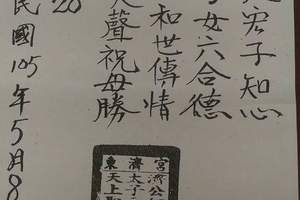 宏子知心
女六合德
和世傳情
聲祝母勝
民國105年5月8
宮濟公
濟太子
東天上